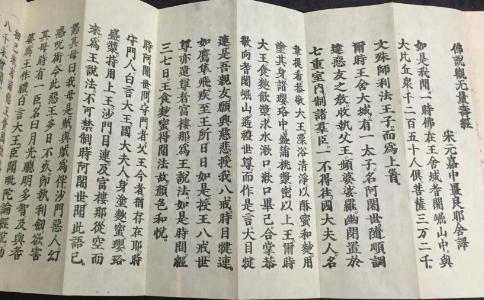 佛說觀無量壽經
宋元嘉中畺良耶舍譯
如是我聞一時佛在王舍城耆闍崛山中與
大比丘衆千二百五十人俱菩薩三万二千
文殊師利法王子而爲上首
爾時王舍大城有一太子名阿闍世隨順調
達惡友之教收執父王頻婆娑羅幽閉置於
七重室內制諸羣臣一不得往國大夫人名
韋提希恭敬大王澡浴清淨以酥蜜和麨用
塗其身諸瓔珞中盛蒲桃漿密以上王爾時
大王食麨飲漿求水漱口漱口畢已合掌恭
敬向耆闍崛山遥禮世尊而作是言大目揵
連是吾親友願興慈悲授我八戒時目犍連
如鷹隼飛疾至王所日日如是授王八戒世
尊亦遣尊者富樓那爲王說法如是時間經
三七日王食麨蜜得聞法故顏色和悅
時阿闍世問守門者父王今者猶存在耶時
守門人白言大王國大夫人身塗麨蜜瓔珞
盛漿持用上王沙門目連及富樓那從空而
來爲王說法不可禁制時阿闍世聞此語已
怒其母曰我母是賊與賊爲伴沙門惡人幻
惑呪術令此惡王多日不死卽執利劍欲害
其母時有一臣名曰月光聰明多智及與耆
婆爲王作禮白言大王臣聞毗陀論經說劫
初已來有諸惡王貪國位
八千未